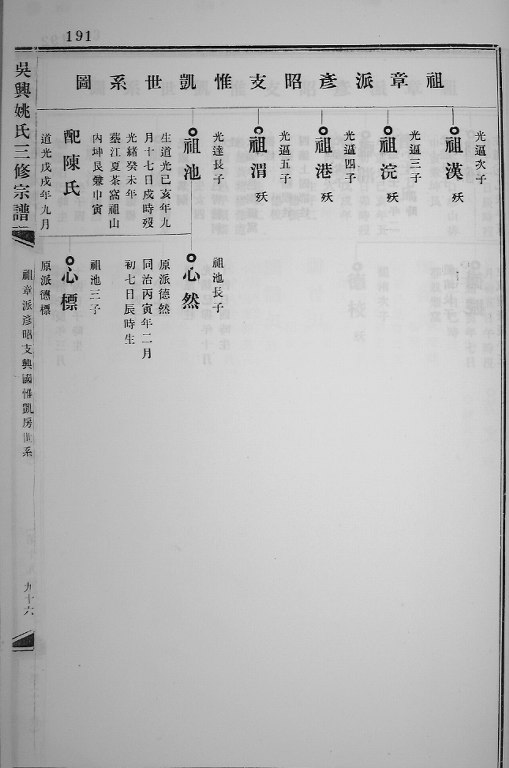 191
祖章派彥昭支惟凱世系圖
光逼次子
祖漢 殀
光逼三子
祖浣 殀
光逼四子
祖港 殀
光逼五子
祖渭 殀
光達長子
祖池
生道光己亥年九
月十七日戌時歿
光緒癸未年
葬江夏茶窩祖山
內坤艮兼申寅
配陳氏
道光戊戌年九月
祖池長子
心然
原派德然
同治丙寅年二月
初七日辰時生
祖池三子
心標
原派德標
吳興姚氏三修宗譜
祖章派彥昭支興國惟凱房世系
九十六